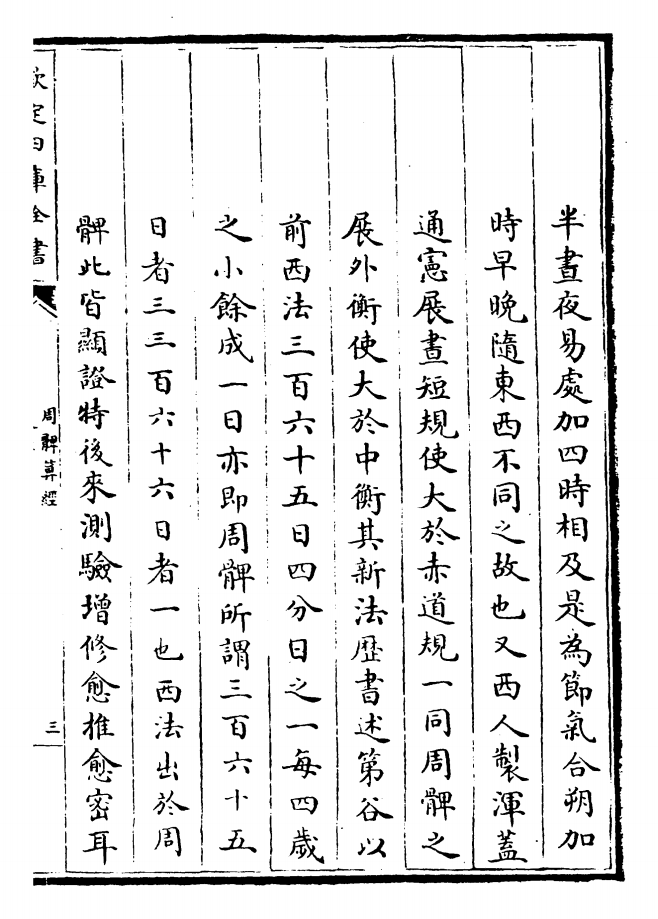 半晝夜易處加四時相及是為節氣合朔加
時早晚隨東西不同之故也又西人製渾蓋
通憲展晝短規使大於赤道規一同周髀之
展外衡使大於中衡其新法歴書述第谷以
前西法三百六十五日四分日之一每四歲
之小餘成一日亦即周髀所謂三百六十五
日者三三百六十六日者一也西法出於周
髀此皆顯證特後來測驗增修愈推愈密耳
欽定四庫全書
周髀算經
三